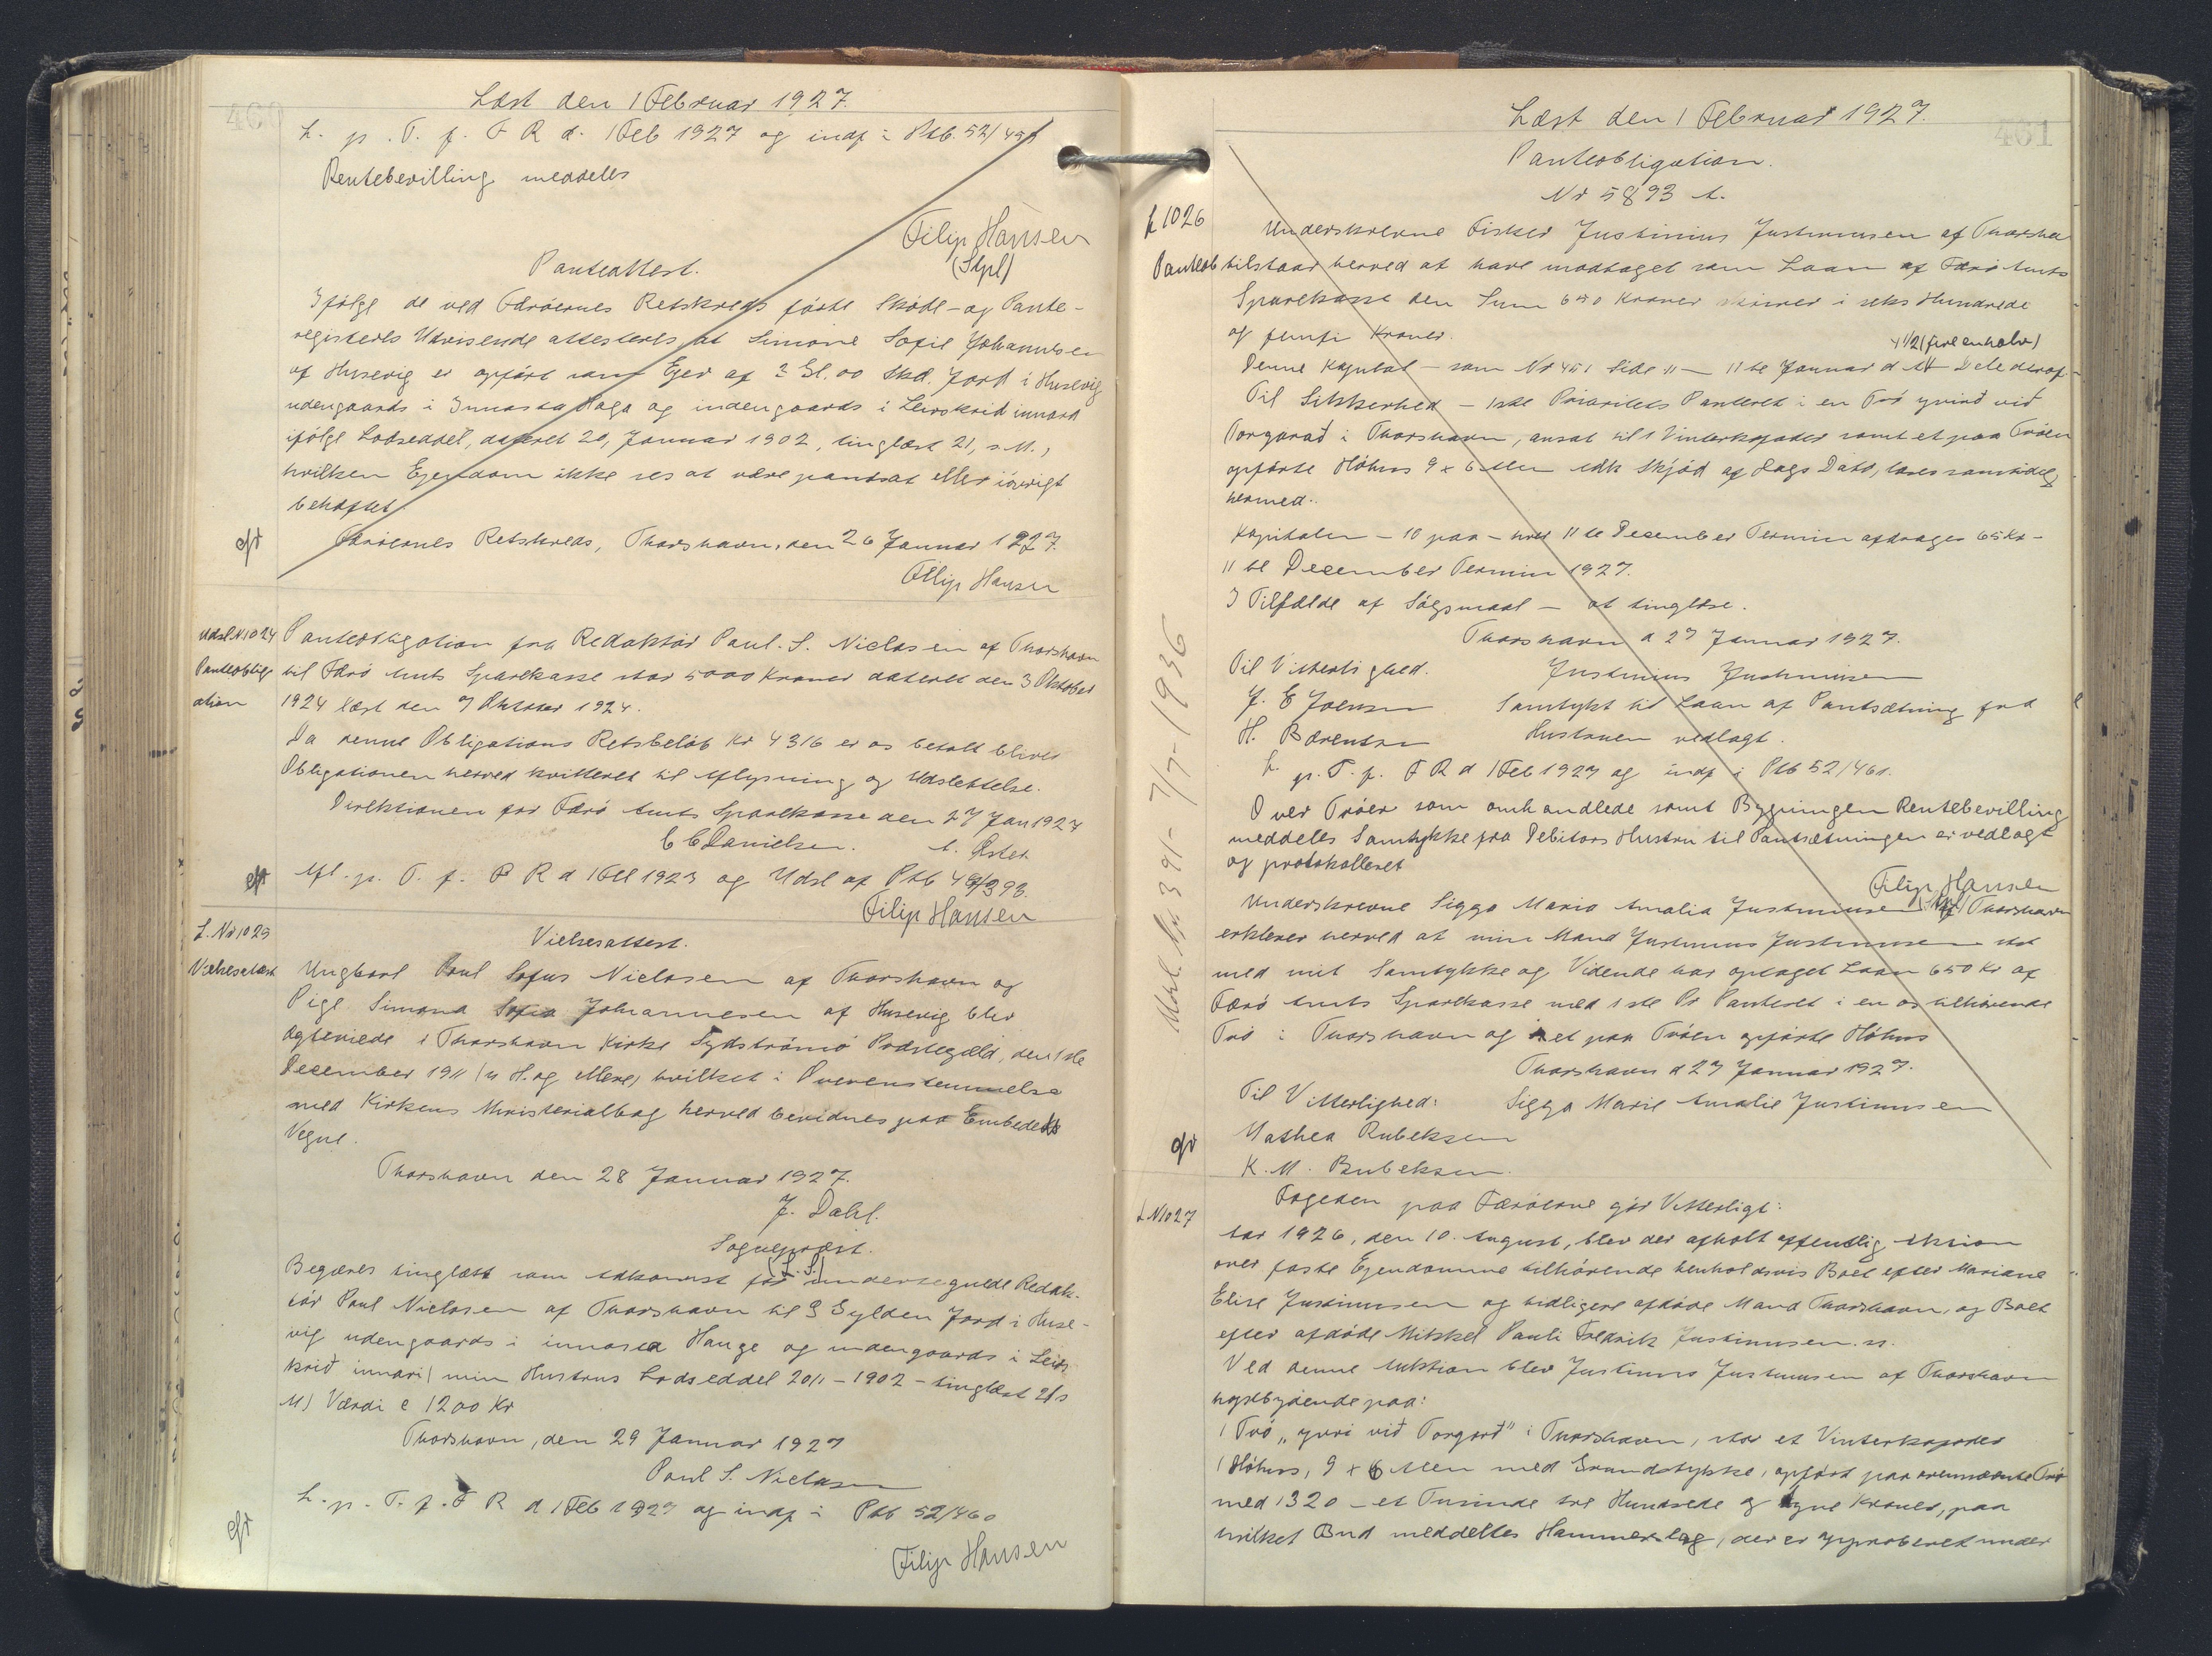 460
Læst den 1 Februar 1927.
L. p. T. f. F R d. 1 Feb 1927 og indf i Ptb. 52/459
Rentebevilling meddeles
Filip Hansen
(Stpl)
Panteattest.
Ifølge de ved Færøernes Retskreds førte Skøde- og Pante-
registeres Udvisende attesteres at Simone Sofie Johannesen
af Husevig er opført som Ejer af 3 Gl. 00 Skd. Jord i Husevig
udengaards i Innasta Haga og indengaards i Leirskrid innard
ifølge Lodseddel, dateret 20, Januar 1902, tinglæst 21, s. M.,
hvilken Ejendom ikke ses at være pantsat eller iøvrigt
behæftet.
Færøernes Retskreds, Thorshavn, den 26 Januar 1927.
Filip Hansen
Udsl. N 1024
Panteoblig
ation
Panteobligation fra Redaktør Poul. S. Niclasen af Thorshavn
til Færø Amts Sparekasse stor 5000 Kroner dateret den 3 Oktober
1924 læst den 7 Oktober 1924.
Da denne Obligations Restbeløb Kr 4316 er os betalt bliver
Obligationen herved kvitteret til Aflysning og Udslettelse.
Direktionen for Færø Amts Sparekasse den 27 Jan 1927
C C Danielsen. A. Øster
Afl. p. T. f. F R d 1 Feb 1927 og Udsl af Ptb 49/393.
Filip Hansen
L. Nr 1025
Vielsesattest
Vielsesattest.
Ungkarl Poul Sofus Niclasen af Thorshavn og
Pige Simona Sofia Johannesen af Husevig blev
ægteviede i Thorshavn Kirke Sydstrømø Præstegæld, den 1ste
December 1911 hvilket i Overensstemmelse
med Kirkens Ministerialbog herved bevidnes paa Embedets
Vegne.
Thorshavn den 28 Januar 1927.
J. Dahl.
Sognepræst.
(L.S.)
Begæres tinglæst som Adkomst for undertegnede Redak-
tør Poul Niclasen af Thorshavn til 3 Gylden Jord i Huse-
vig udengaards i innasta Hauge og indengaards i Leirs-
krið innari min Hustrus Lodseddel 20/1 - 1902 - tinglæst 21 s
M) Værdi c 1200 Kr
Thorshavn, den 29 Januar 1927
Poul S. Niclasen
L. p. T. f. F R d 1 Feb 1927 og indf i Ptb 52/460
Filip Hansen
461
Læst den 1 Februar 1927.
Panteobligation.
Nr 5893 A.
L 1026
Panteob
Underskrevne Fisker Justinus Justinussen af Thorsha
tilstaar herved at have modtaget som Laan af Færø Amts
Sparekasse den Sum 650 Kroner skriver i seks Hundrede
og femti Kroner.
4 1/2 (fire en halv)
Denne Kapital - som Nr 451 Side 11 - 11te Januar d A Dele deraf -
Til Sikkerhed - 1ste Prioritets Panteret i en Trø yvirð við
Torgarað i Thorshavn, ansat til 1 Vinterkofoder samt et paa Trøen
opførte Høhus 9 x 6 Alen Adk Skjød af Dags Dato, læses samtidig
hermed.
Kapitalen - 10 paa - hver 11te December Termin afdrages 65 Kr -
11te December Termin 1927.
I Tilfælde af Søgsmaal - at tinglæse.
Thorshavn d 27 Januar 1927.
Til Vitterlighed. Justinius Justinusen
J. E Joensen Samtykt til Laan af Pantsætning fra
H. Bærentsen Hustruen vedlagt.
L p. T. f. F R d 1 Feb 1927 og indf i Ptb 52/461.
Over Trøen som omhandlede samt Bygningen Rentebevilling
meddeles Samtykke fra Debitors Hustru til Pantsætningen er vedlagt
og protokolleret
Filip Hansen
Underskrevne Sigga Maria Amalia Justinusen af Thorshavn
erklærer herved at min Mand Justinus Justinusen
med mit Samtykke og Vidende har optaget Laan 650 Kr af
Færø Amts Sparekasse med 1ste Pr Panteret i en os tilhørende
Trø i Thorshavn og et paa Trøen opførte Høhus
Thorshavn d 27 Januar 1927.
Til Vitterlighed: Sigga Marie Amalie Justinusen
Mathea Rubeksen
K. M. Rubeksen.
Udsl. Nr 391- 7/7-1936
L N 1027
Fogeden paa Færøerne gør Vitterligt:
Aar 1926, den 10. August, blev der afholt offentlig Aktion
over faste Ejendomme tilhørende henholdsvis Boet efter Mariane
Elise Justinussen og tidligere afdøde Mand Thorshavn, og Boet
efter afdøde Mikkel Pauli Fredrik Justinusen. ss.
Ved denne Auktion blev Justinus Justinusen af Thorshavn
højstbydende paa:
1 Trø „yviri við Torgarð" i Thorshavn, stor et Vinterkofoder
1 Høhus, 9 x 6 Alen med Grundstykke, opført paa ovennævnte Trø
med 1320 - et Tusinde tre Hundrede og tyve Kroner, paa
hvilket Bud meddeltes Hammerslag, der er approberet under